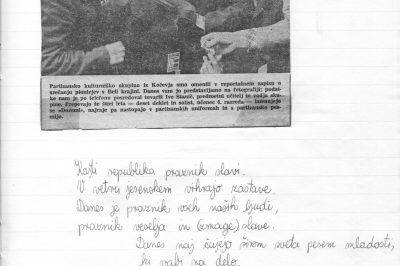 Partizansko kulturniško skupino iz Kočevja smo omenili v reportažnem zapisu o
srečanju pionirjev v Beli krajini. Danes vam jo predstavljamo na fotografiji; podat-
ke nam je po telefonu posredoval tovariš Ivo Stanič, predmetni učitelj in vodja sku-
pine. Prepevajo že štiri leta — deset deklet in solist, učenec 6. razreda. — imenujejo
se najraje pa nastopajo v partizanskih uniformah in s partizansko pes-
mijo.
Naši republika praznik slavi.
V vetru jesenskem vihrajo zastave.
Danes je praznik vseh naših ljudi,
praznik veselja in (zmage) slave.
Danes naj čujejo širom sveta pesem mladosti,
ki vabi na delo.